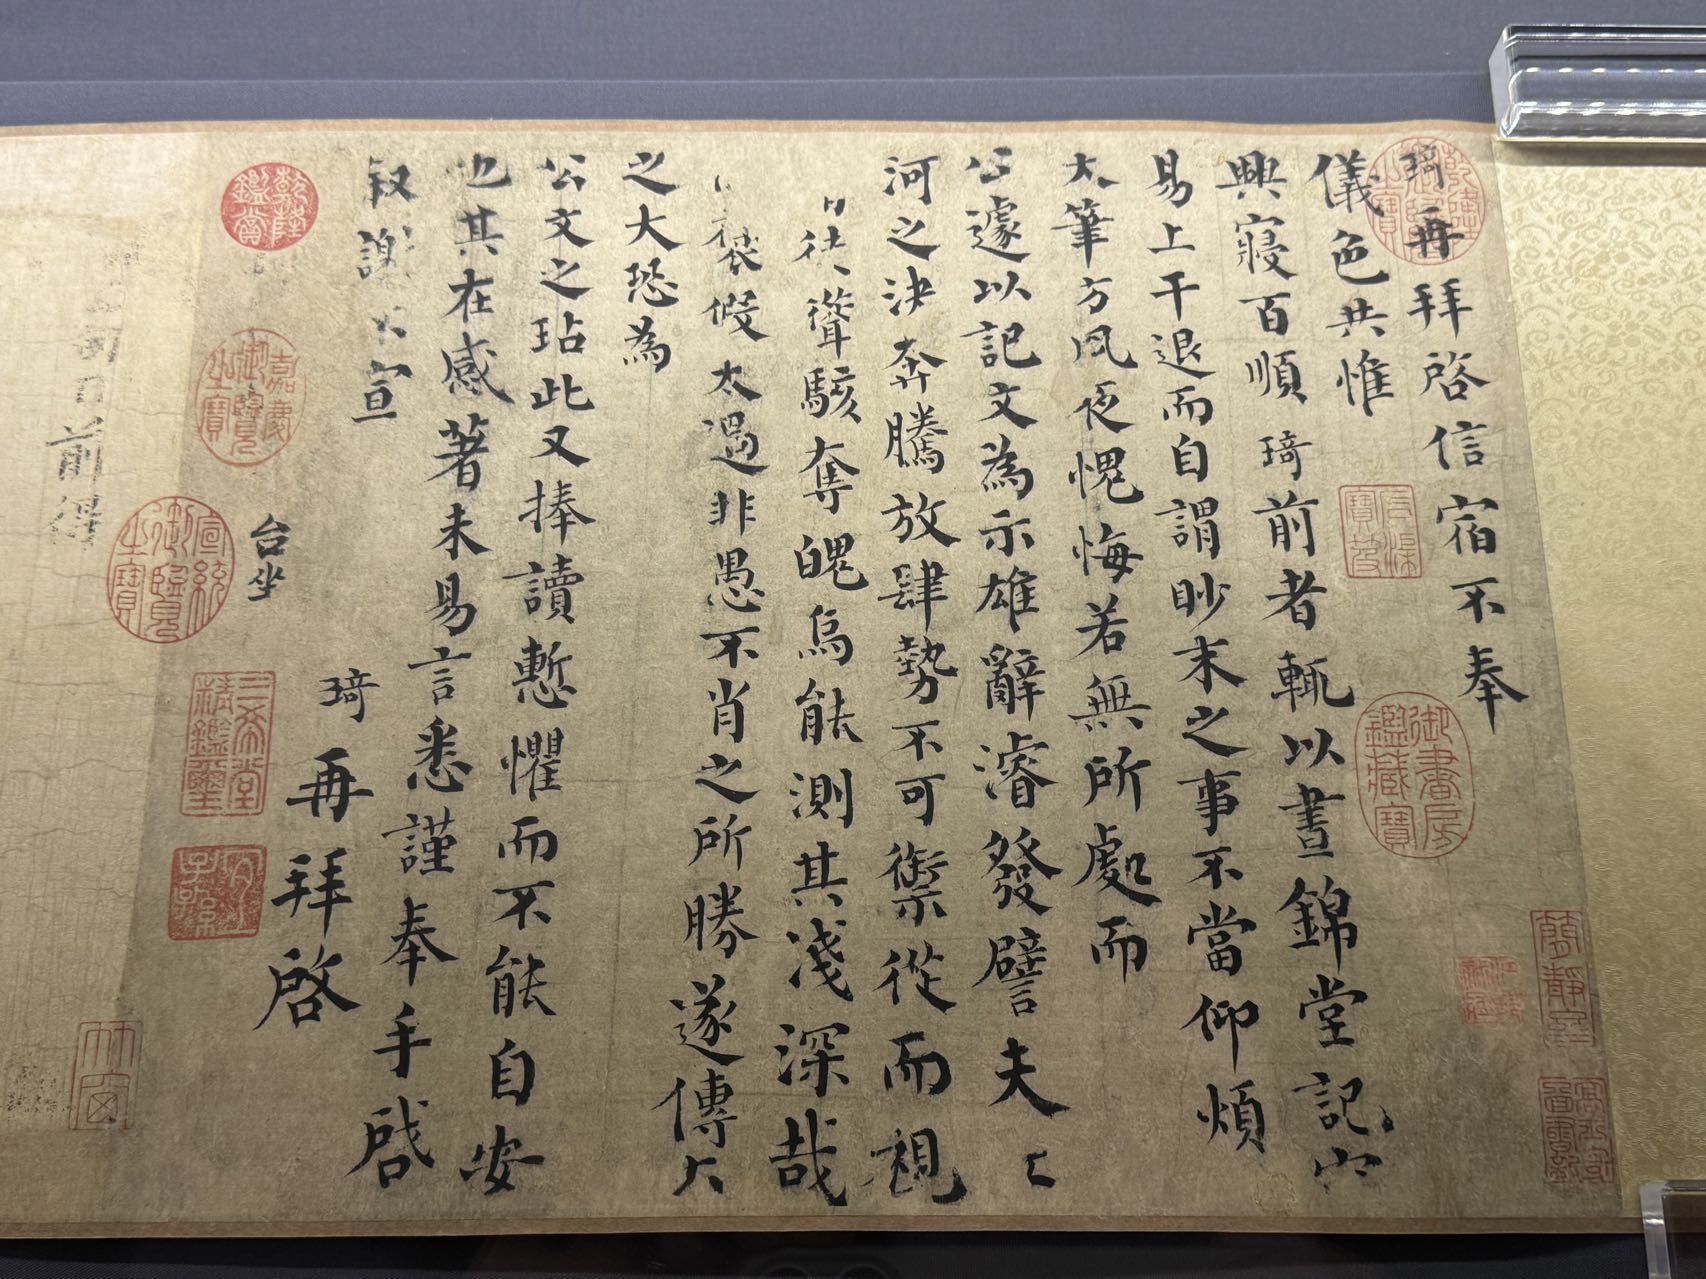 琦再拜啓信宿不奉
儀色共惟
興寢百順琦前者輒以晝錦堂記
易上干退而自謂眇末之事不當仰煩
大筆方夙夜愧悔若無所處而
公遽以記文為示雄辭濬發譬夫
河之決奔騰放肆勢不可禦從而視
徒聳駭奪魄烏能測其淺深哉
褒假太過非愚不肖之所勝遂傳
之大恐為
公文之玷此又捧讀慙懼而不能自安
也其在感著未易言悉謹奉手啟
敘謝不宣
琦再拜啓
台坐
乾隆鑑賞
嘉慶御覽之寶
宣統御覽之寶
三希堂精鑑璽
宜子孫
御書房鑑藏寶
前得